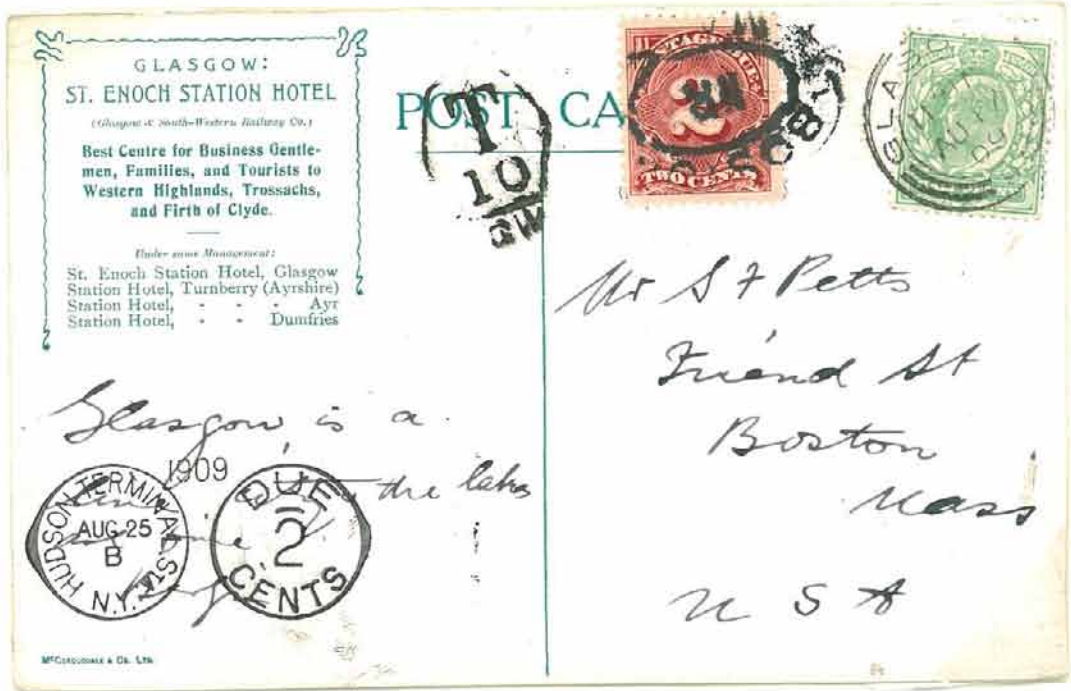 GLASGOW:
ST. ENOCH STATION HOTEL
(Glasgow & South-Western Railway Co.)
Best Centre for Business Gentle-
men, Families, and Tourists to
Western Highlands, Trossachs,
and Firth of Clyde.
Under same Management:
St. Enoch Station Hotel, Glasgow
Station Hotel, Turnberry (Ayrshire)
Station Hotel, - - - Ayr
Station Hotel, - - Dumfries
POST CA
T
10
POSTAGE DUE
2
TWO CENTS
BOS
GLASGO
AU
Mr S F Petts
Friend St
Boston
Mass
U S A
Glasgow is a
the lakes
HUDSON TERMINAL STA. N.Y.
1909
AUG 25
B
DUE
2
CENTS
McCorquodale & Co. Ltd.